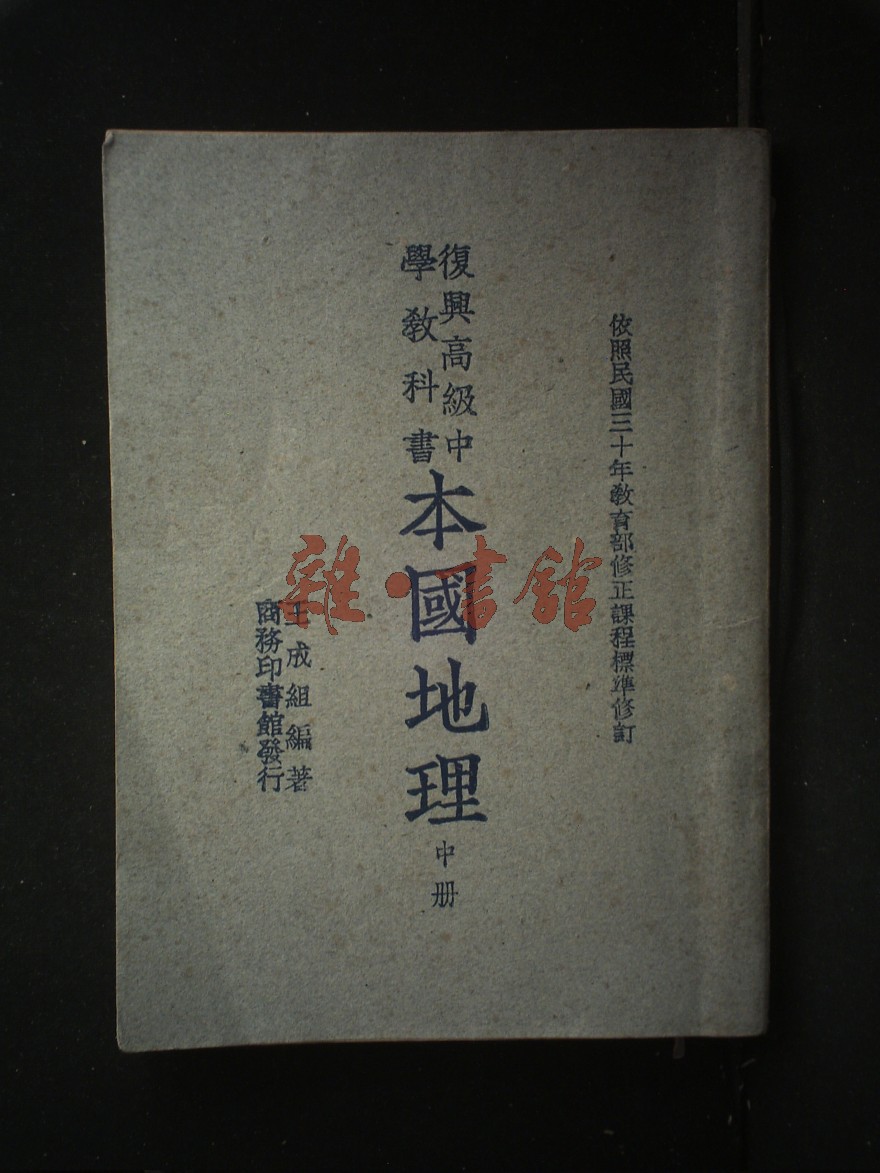 依照民國三十年教育部修正課程標準修訂
復興高級中
學教科書
本國地理
中册
王成組編著
商務印書館發行
雜·書館